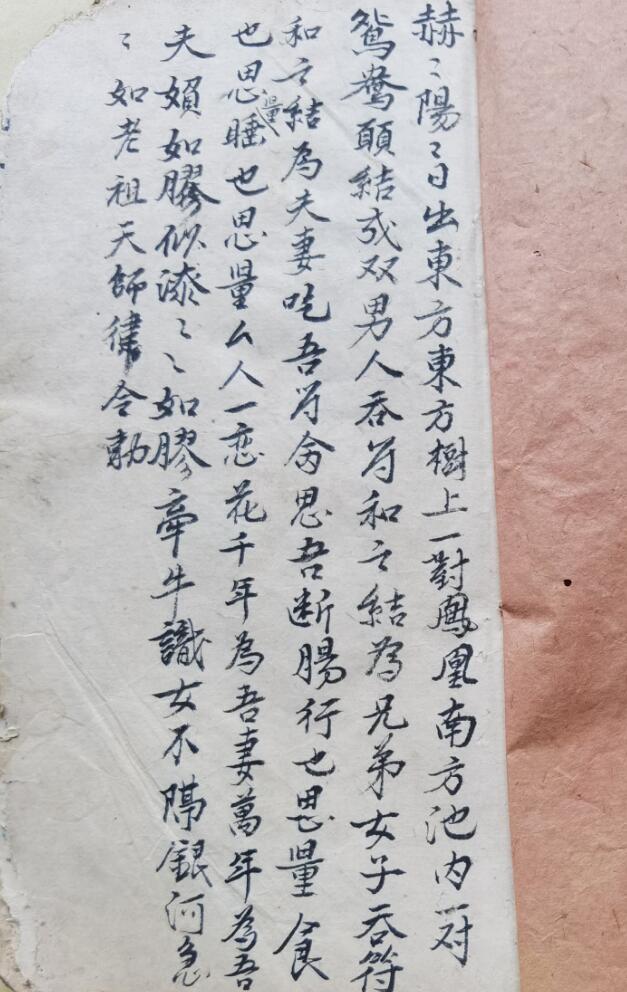 赫〻陽〻日出東方東方樹上一對鳳凰南方池内一对
鴛鴦願結成双男人吞符和之結為兄弟女子吞符
和之結為夫妻吃吾符肏思吾断腸行也思量食
也思量睡也思量厶人一恋花千年為吾妻萬年為吾
夫㛲如膠似漆〻〻如膠牽牛識女不隔銀河急
〻如老祖天師律令勅